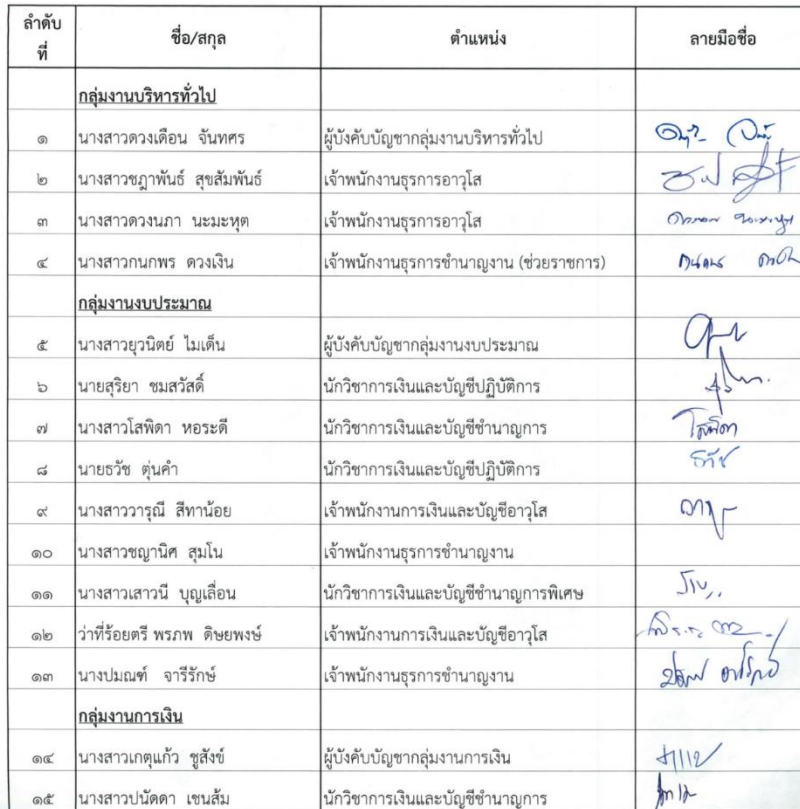 ลำดับที่ ชื่อ/สกุล ตำแหน่ง ลายมือชื่อ
กลุ่มงานบริหารทั่วไป
๑ นางสาวดวงเดือน จันทศร ผู้บังคับบัญชากลุ่มงานบริหารทั่วไป
๒ นางสาวชฎาพันธ์ สุขสัมพันธ์ เจ้าพนักงานธุรการอาวุโส
๓ นางสาวดวงนภา นะมะหุต เจ้าพนักงานธุรการอาวุโส
๔ นางสาวกนกพร ดวงเงิน เจ้าพนักงานธุรการชำนาญงาน (ช่วยราชการ)
กลุ่มงานงบประมาณ
๕ นางสาวยุวนิตย์ ไมเด็น ผู้บังคับบัญชากลุ่มงานงบประมาณ
๖ นายสุริยา ชมสวัสดิ์ นักวิชาการเงินและบัญชีปฏิบัติการ
๗ นางสาวโสพิดา หอระดี นักวิชาการเงินและบัญชีชำนาญการ โสพิดา
๘ นายธวัช ตุ่นคำ นักวิชาการเงินและบัญชีปฏิบัติการ ธวัช
๙ นางสาววารุณี สีทาน้อย เจ้าพนักงานการเงินและบัญชีอาวุโส
๑๐ นางสาวชญานิศ สุมโน เจ้าพนักงานธุรการชำนาญงาน
๑๑ นางสาวเสาวนี บุญเลื่อน นักวิชาการเงินและบัญชีชำนาญการพิเศษ
๑๒ ว่าที่ร้อยตรี พรภพ ดิษยพงษ์ เจ้าพนักงานการเงินและบัญชีอาวุโส
๑๓ นางปมณฑ์ จารีรักษ์ เจ้าพนักงานธุรการชำนาญงาน
กลุ่มงานการเงิน
๑๔ นางสาวเกตุแก้ว ชูสังข์ ผู้บังคับบัญชากลุ่มงานการเงิน
๑๕ นางสาวปนัดดา เชนส้ม นักวิชาการเงินและบัญชีชำนาญการ